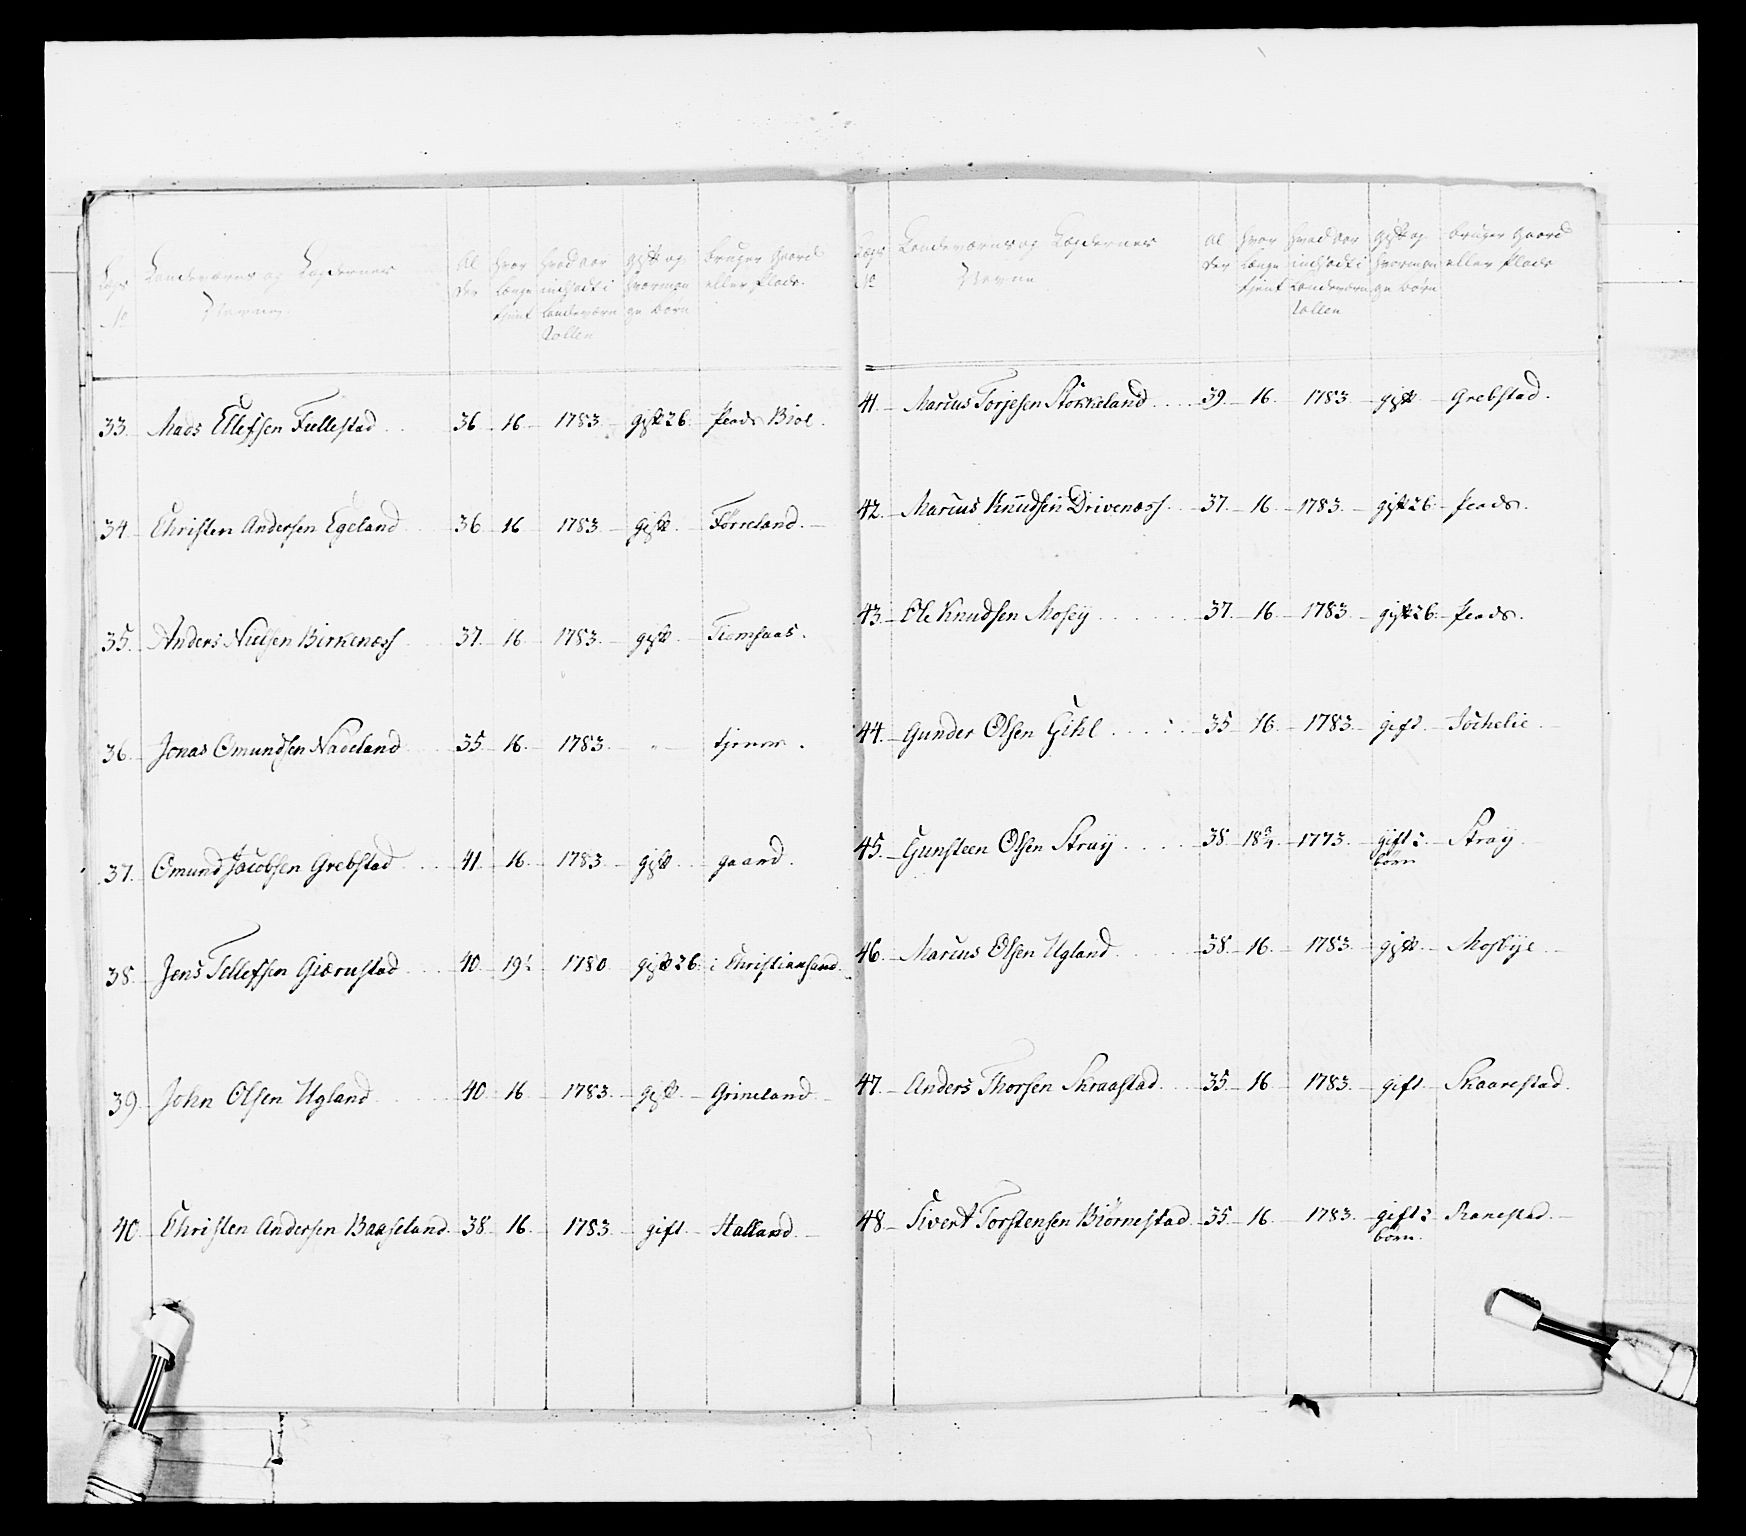 Legs No
Landeværns og Lægdernes Navne
Al der
hvor længe tjent
hvad aar indsadt i Landeværns Rollen
gift og hvormange børn
bruger Gaard eller Plads
33. Mads Ellefsen Fullestad 36 16 1783 gift 2 b. Plads
34 Christen Andersen Egeland 36 16 1783 gift Førreland
35. Anders Nielsen Birkenæss 37 16 1783 gift
36. Jonas Omundsen Nadeland 35 16 1783 " tjener.
37. Omund Jacobsen Grebstad 41 16 1783 gift gaard.
38. Jens Tellefsen Giærustad 40 19½ 1780 gift 2 b. i Christiansand.
39. John Olsen Ugland 40 16 1783 gift Grineland
40. Christen Andersen Baaseland 38 16 1783 gift Halland
Legs No
Landeværns og Lægdernes Navne
Al der
hvor længe tjent
hvad aar indsadt i Landeværns Rollen
gift og hvormange børn
bruger Gaard eller Plads
41. Marcus Torjesen Stokkeland 39 16 1783 gift Grebstad.
42. Marcus Knudsen Drivenæss 37 16 1783 gift 2 b. Plads.
43. Ole Knudsen Mosey 37 16 1783 gift 2 b. Plads.
44. Gunder Olsen Gihl 35 16 1783 gift
45. Gunsteen Olsen Stray 38 18¾ 1773. gift 2 Stray
børn
46. Marcus Olsen Ugland 38 16 1783 gift Mosbye
47. Anders Thorsen Skraastad 35 16 1783 gift Skaarestad.
48 Sivert Torstensen Biörnestad 35 16 1783 gift 2 Ranestad
børn.